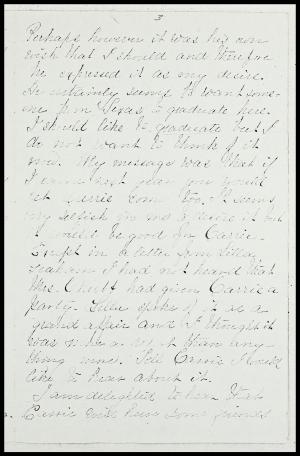 3
Perhaps however it was his own
wish that I should and therefore
he expressed it as my desire.
He certainly seems to want some-
one from Texas to graduate here.
I should like to graduate but I
do not want to think of it
now. My message was that if
I came next year you would
let Carrie come too. It seems
very selfish in me to desire it but
it would be good for Carrie.
Except in a letter from Lilla
I had not heard that
Mrs. had given Carrie a
party. Lilla spoke of it as a
grand affair and I thought it
was than any-
thing . Tell Carrie I would
like to hear about it.
I am delighted to hear that
Carrie some friends